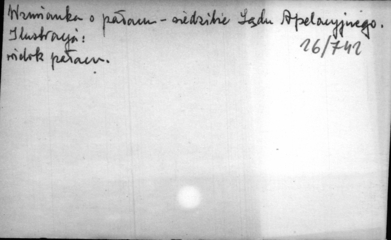 Wzmianka o pałacu - siedzibie Sądu Apelacyjnego.
Ilustracja:
widok pałacu.
26/742